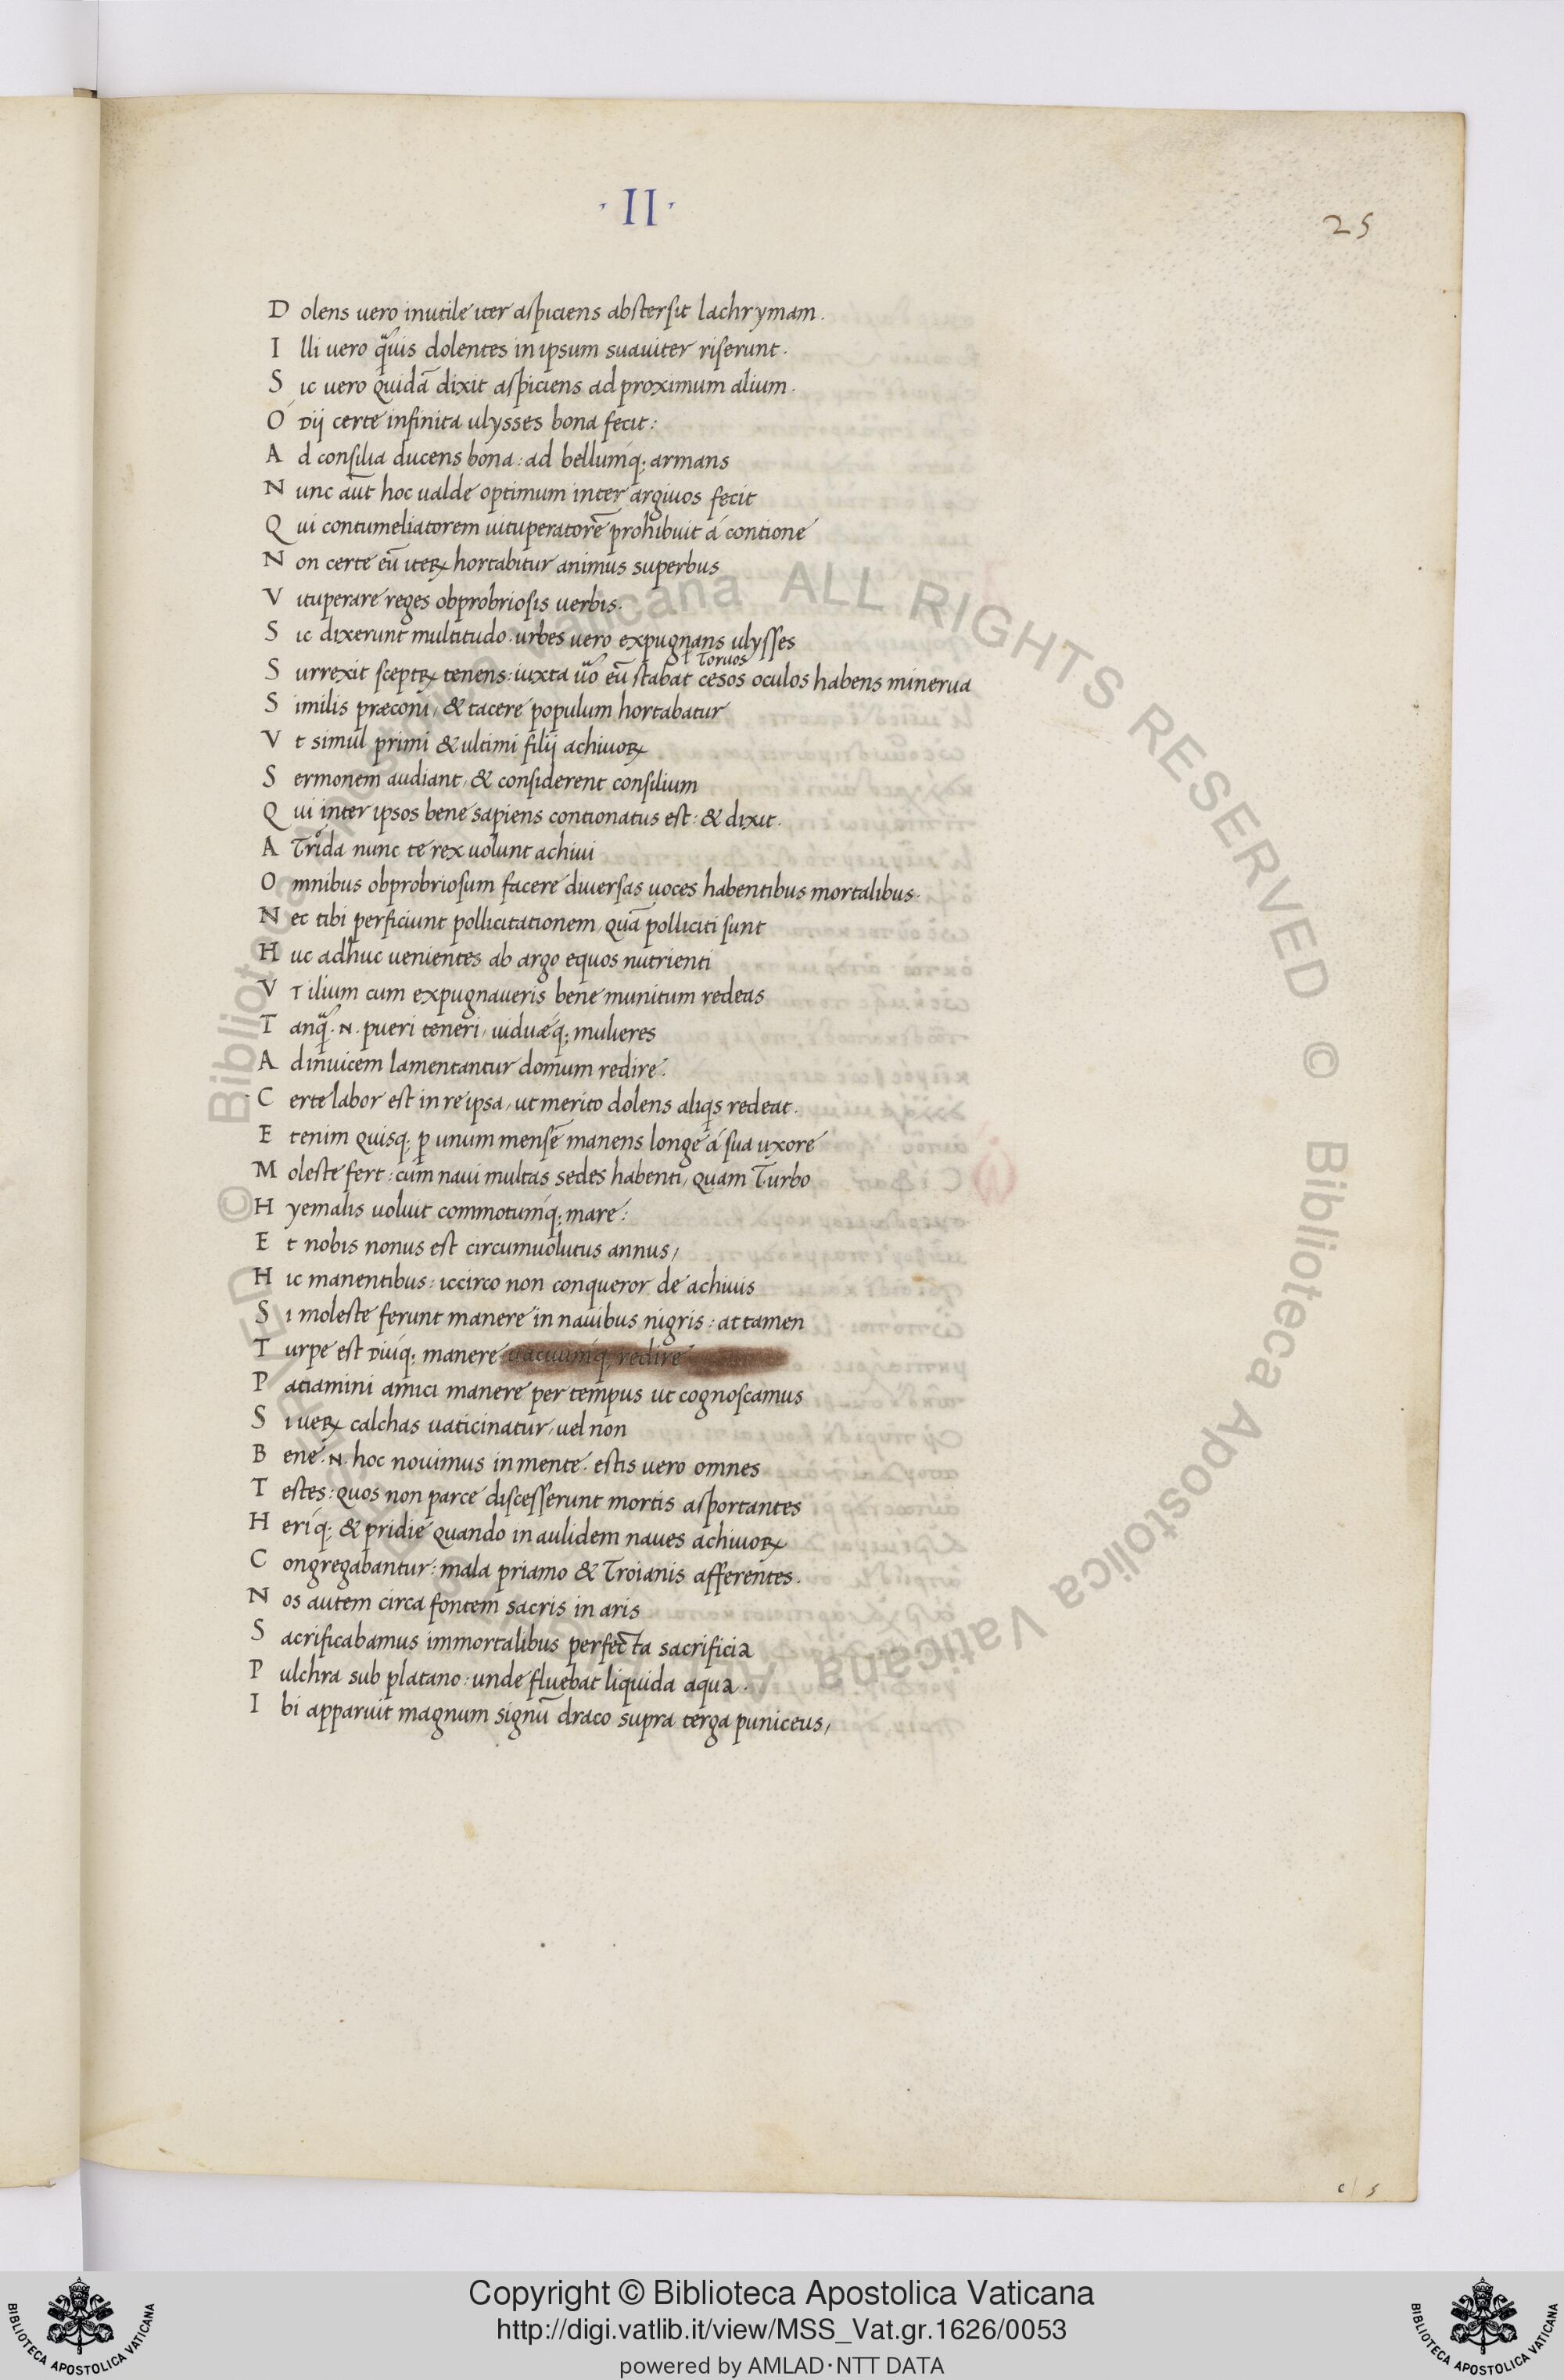 · II ·
25
D olens uero inutile iter aspiciens abstersit lachrymam.
I lli uero q̃uis dolentes in ipsum suauiter riserunt.
S ic uero quidã dixit aspiciens ad proximum alium.
O Dij certe infinita ulysses bona fecit:
A d consilia ducens bona: ad bellumq; armans
N unc aũt hoc ualde optimum inter argiuos fecit
Q ui contumeliatorem uituperatorẽ prohibuit á contione
N on certe eũ iteꝝ hortabitur animus superbus
V ituperare reges obprobriosis uerbis.
S ic dixerunt multitudo. urbes uero expugnans ulysses
ł Toruos
S urrexit sceptꝝ tenens: iuxta ũo eũ stabat cesos oculos habens minerua
S imilis præconi, & tacere populum hortabatur
V t simul primi & ultimi filij achiuoꝝ
S ermonem audiant, & considerent consilium
Q ui inter ipsos bene sapiens contionatus est: & dixit.
A Trida nunc te rex uolunt achiui
O mnibus obprobriosum facere diuersas uoces habentibus mortalibus.
N ec tibi perficiunt pollicitationem, quã polliciti sunt
H uc adhuc uenientes ab argo equos nutrienti
V T ilium cum expugnaueris bene munitum redeas
T anq̃. N. pueri teneri, uiduæq; mulieres
A dinuicem lamentantur domum redire.
C erte labor est in re ipsa, ut merito dolens aliq̃s redeat.
E tenim quisq; ꝑ unum mensẽ manens longe á sua uxore
M oleste fert: cum naui multas sedes habenti, quam Turbo
H yemalis uoluit commotumq; mare:
E t nobis nonus est circumuolutus annus,
H ic manentibus: iccirco non conqueror de achiuis
S i moleste ferunt manere in nauibus nigris: attamen
T urpe est Diuq; manere uacuumq; redire
P atiamini amici manere per tempus ut cognoscamus
S i ueꝝ calchas uaticinatur, uel non
B ene. N. hoc nouimus in mente. estis uero omnes
T estes: quos non parce discesserunt mortis asportantes
H eriq; & pridie quando in aulidem naues achiuoꝝ
C ongregabantur: mala priamo & Troianis afferentes.
N os autem circa fontem sacris in aris
S acrificabamus immortalibus perfecta sacrificia
P ulchra sub platano: unde fluebat liquida aqua.
I bi apparuit magnum signũ draco supra terga puniceus,
c | 5
© Biblioteca Apostolica Vaticana ALL RIGHTS RESERVED © Biblioteca Apostolica Vaticana ALL RIGHTS RESERVED
Copyright © Biblioteca Apostolica Vaticana
http://digi.vatlib.it/view/MSS_Vat.gr.1626/0053
powered by AMLAD·NTT DATA
BIBLIOTECA APOSTOLICA VATICANA
BIBLIOTECA APOSTOLICA VATICANA